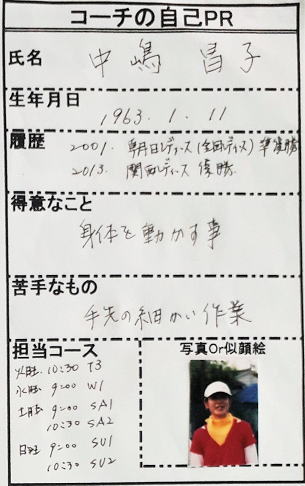 コーチの自己PR
氏名 中嶋 昌子
生年月日
1963. 1. 11
履歴 2001. 朝日レディース(全国レディース)準優勝
2013. 関西レディース 優勝
得意なこと
身体を動かす事
苦手なもの
手先の細かい作業
担当コース
火曜 10:30 T3
水曜 9:00 W1
土曜 9:00 SA1
10:30 SA2
日曜 9:00 SU1
10:30 SU2
写真Or似顔絵